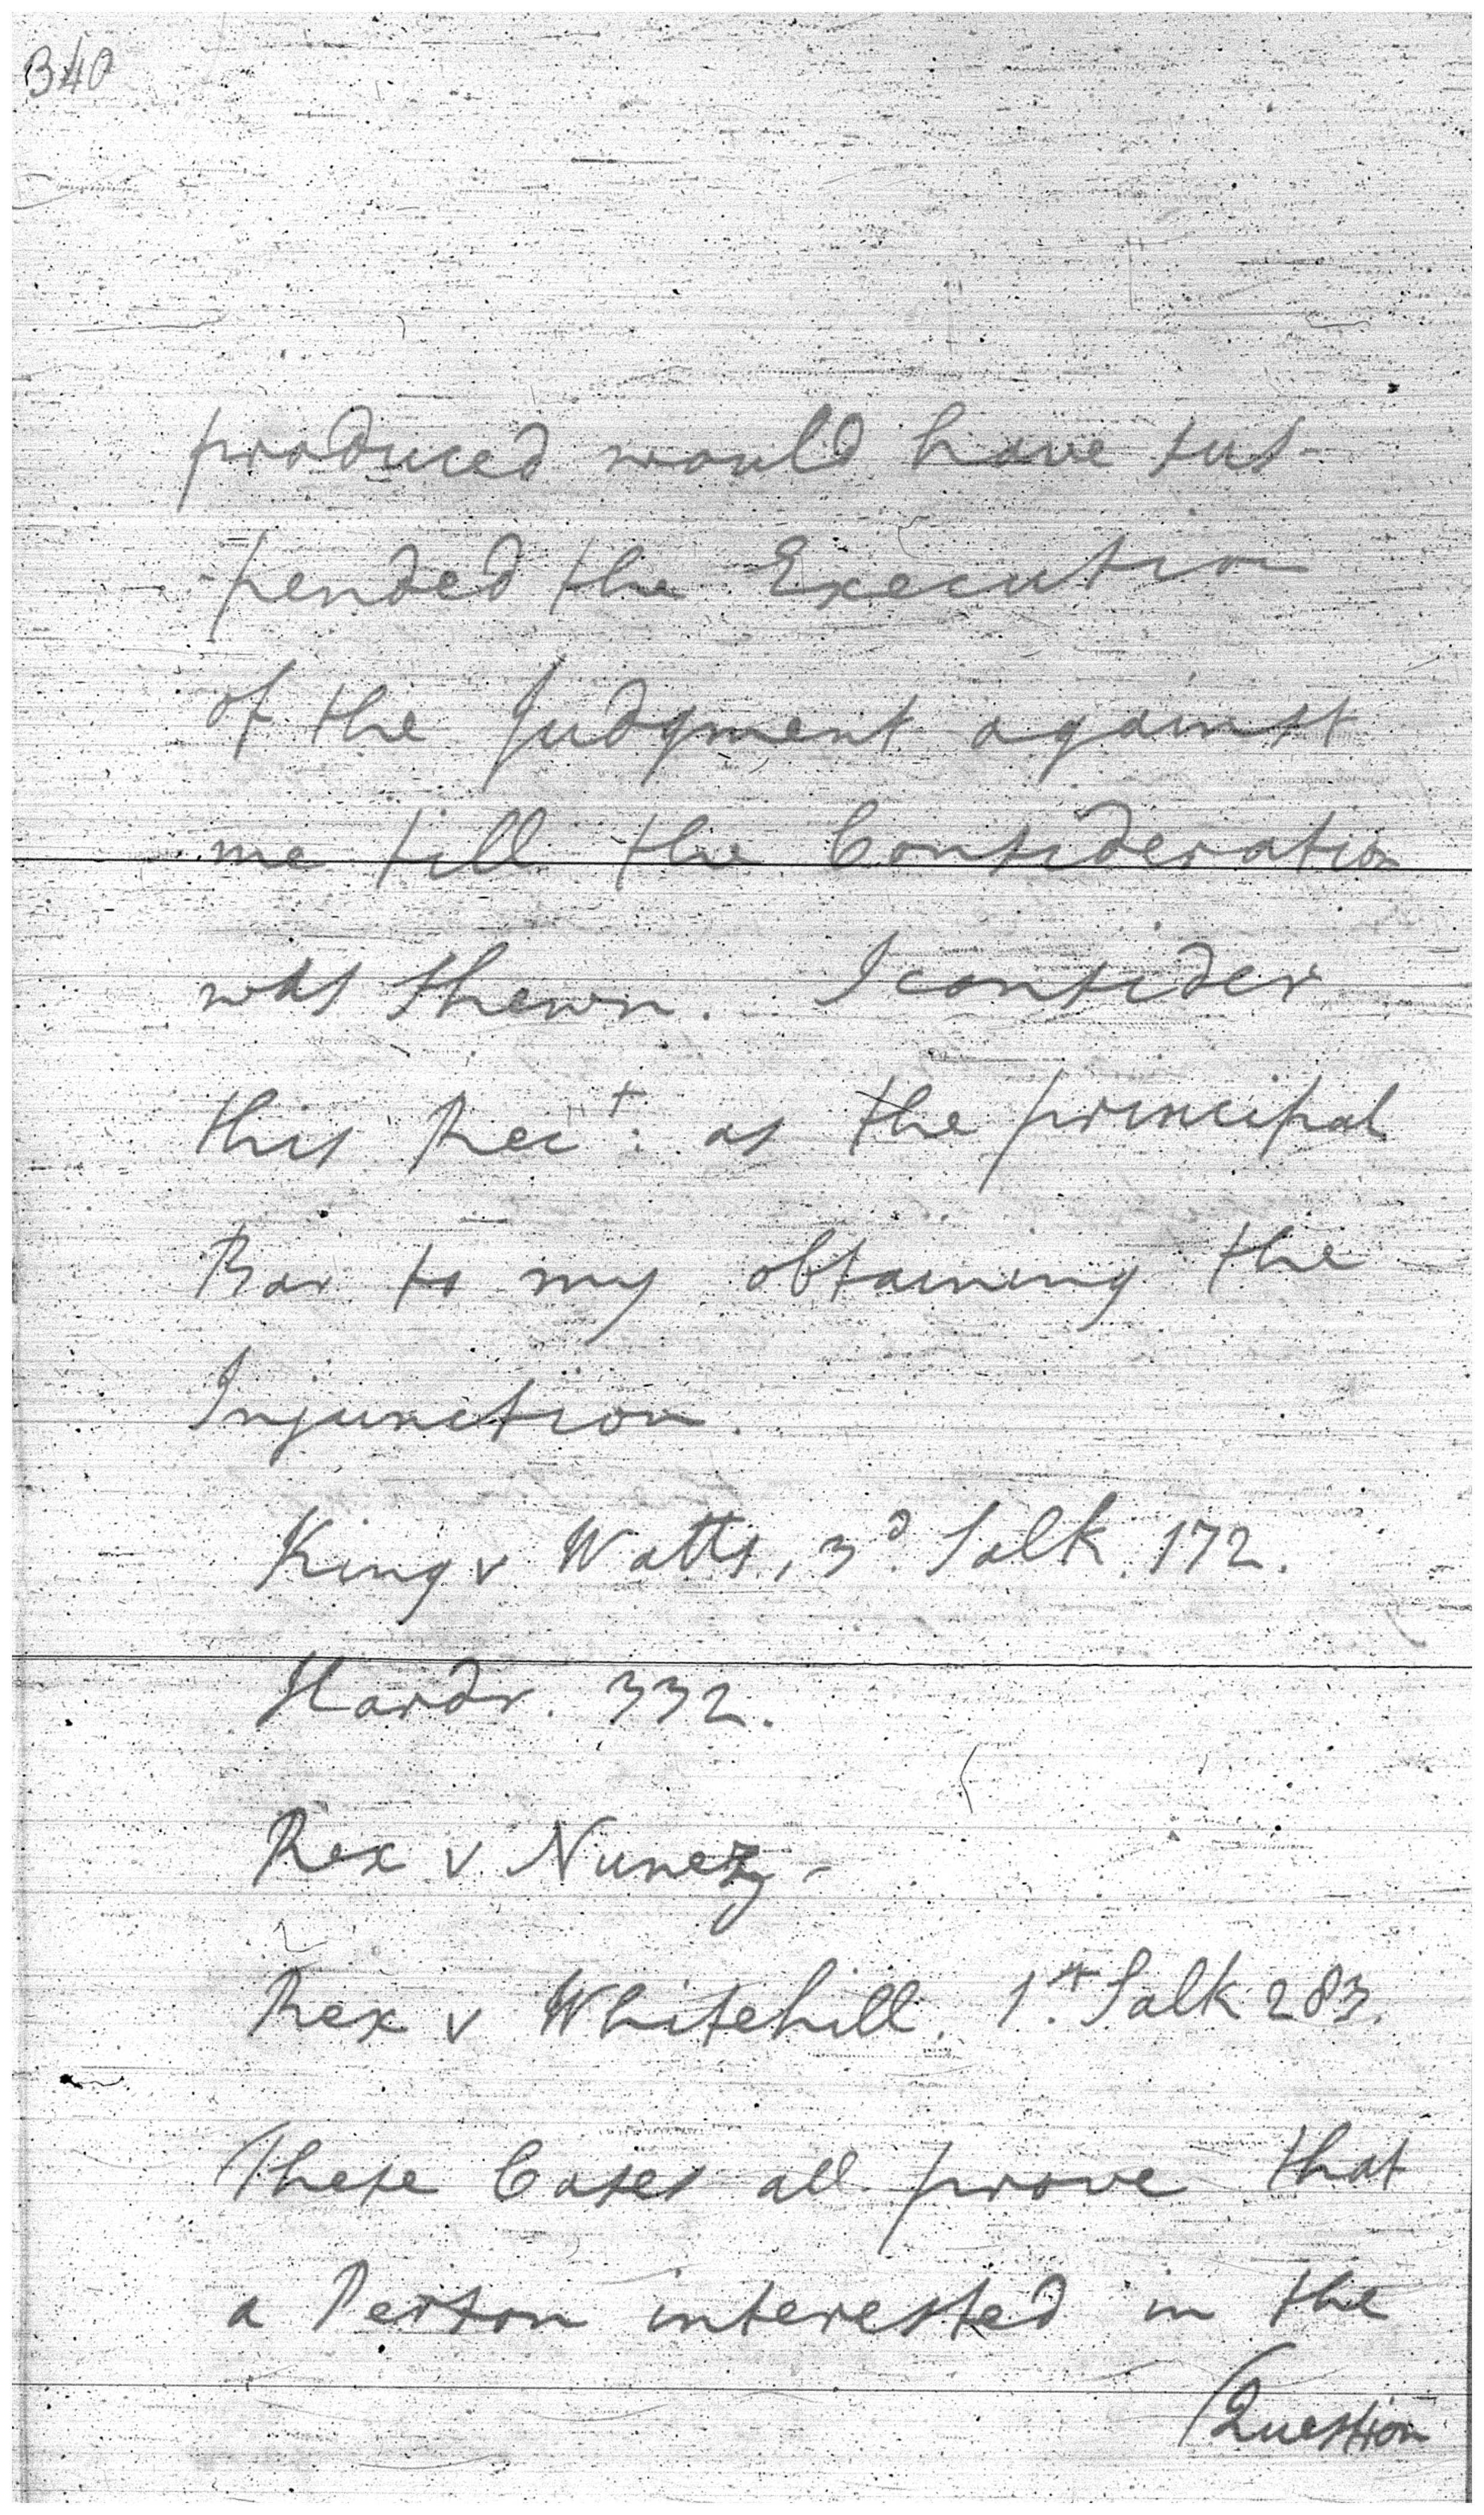 340
produced would have sus-
-pended the Execution
of the Judgment against
me till the Consideration
was shewn. I consider
this Rec^t: as the principal
Bar to my obtaining the
Injunction.
King v Watts, 3^d. Salk. 172.
Hardr. 332.
Rex v Nunez -
Rex v Whitehill. 1^st. Salk 283.
These Cases all prove that
a Person interested in the
Question